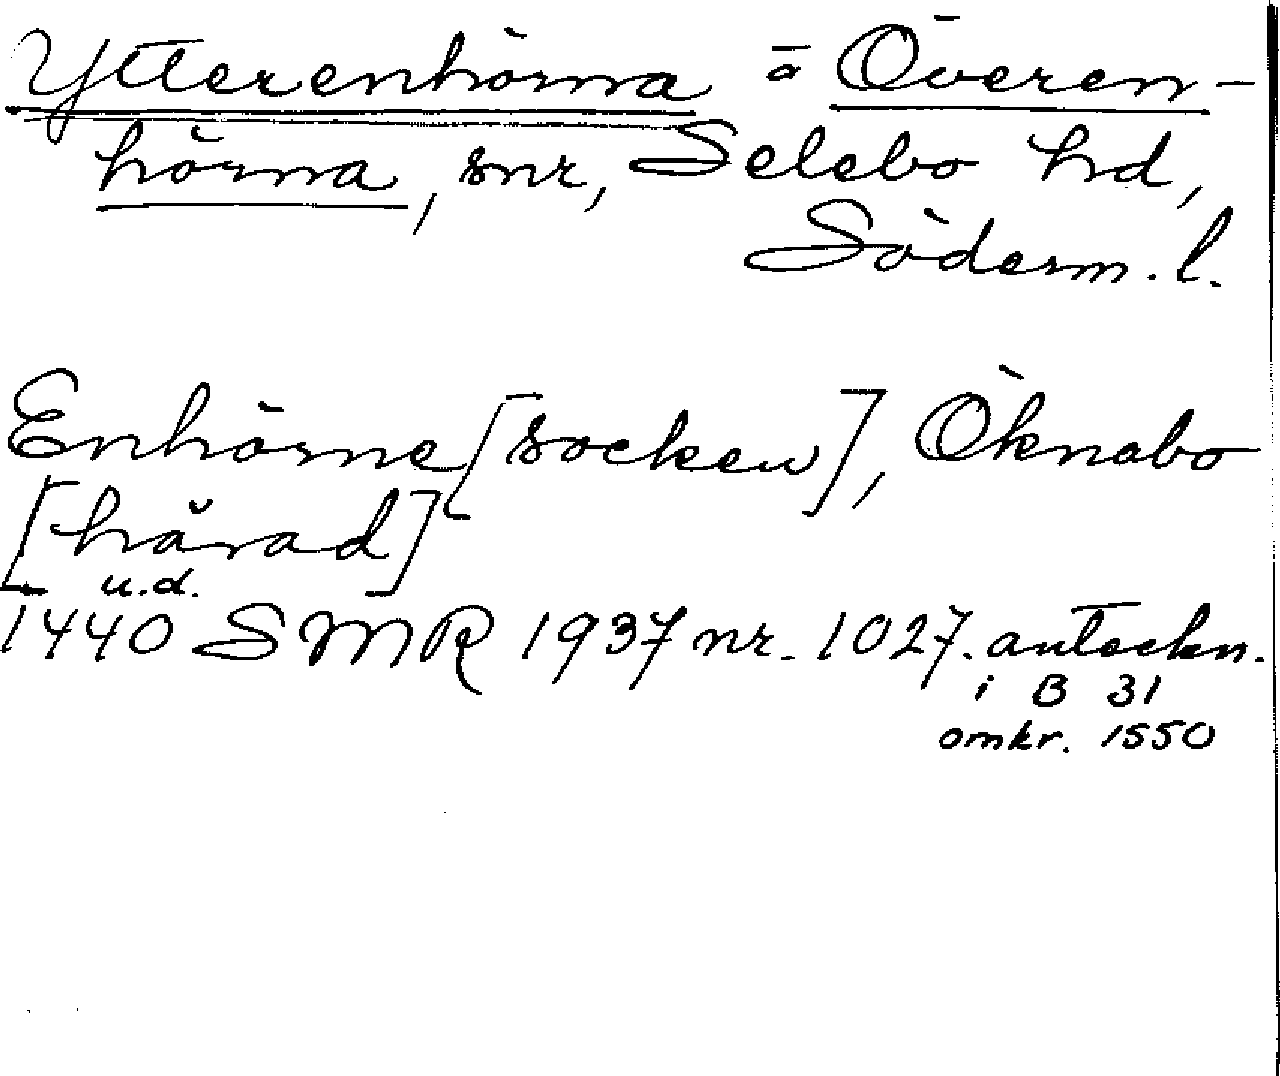 Ytterenhörna o Överen-
hörna, snr, Selebo hd,
Söderm. l.
Enhörne [socken], Öknabo
[härad]
u.d.
1440 SMR 1937 nr. 1027. anteckn.
i B 31
omkr. 1550